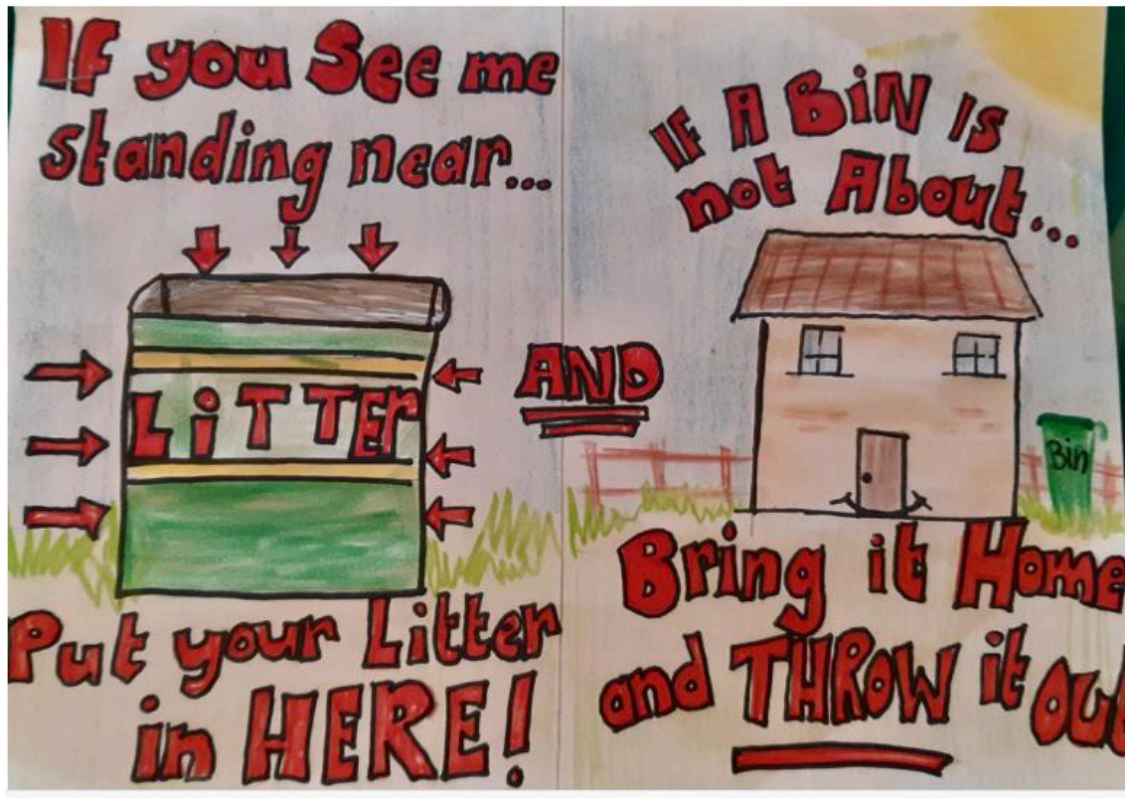 IF you See me
standing near...
LiTTEr
Put your Litter
in HERE!
AND
IF A BiN is
not About...
Bin
Bring it Home
and THROW it out